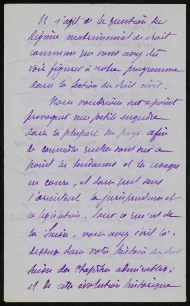 Il s'agit de la question du
Régime matrimonial de droit
commun que vous avez dû
voir figurer à notre programme
dans la section du droit civil.
Nous voudrions sur ce point
provoquer une petite enquête
dans la plupart des pays afin
de connaître quelles sont sur ce
point les tendances et les usages
en cours, et dans quel sens
s'orientent la jurisprudence et
la législation. Pour ce qui est de
la Suisse, vous avez écrit là-
dessus dans votre histoire du droit
suisse des chapitres admirables ;
et de cette évolution historique